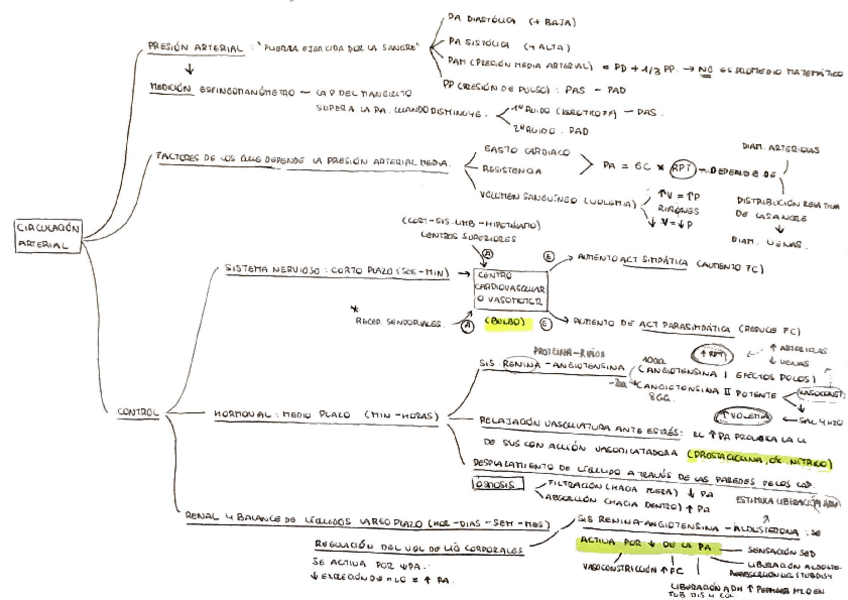 PRESIÓN ARTERIAL : "FUERZA EJERCIDA POR LA SANGRE"
PA DIASTÓLICA (+ BAJA)
PA SISTÓLICA (+ ALTA)
PAM (PRESIÓN MEDIA ARTERIAL) = PD + 1/3 PP. → NO ES PROMEDIO MATEMÁTICO
PP (PRESIÓN DE PULSO) : PAS - PAD
MEDICIÓN ESFINGOMANÓMETRO - LA P DEL MANGUITO
SUPERA LA PA. CUANDO DISMINUYE.
1º RUIDO - PAS.
2º RUIDO . PAD
FACTORES DE LOS QUE DEPENDE LA PRESIÓN ARTERIAL MEDIA.
GASTO CARDIACO
RESISTENCIA
PA = GC * RPT → DEPENDE DE
DIAM. ARTERIOLAS
DISTRIBUCIÓN RELATIVA
DE LA SANGRE
DIAM. VENAS.
VOLUMEN SANGUÍNEO (VOLEMIA)
↑V = ↑P
RIÑONES
↓V = ↓P
CIRCULACIÓN
ARTERIAL
CONTROL
SISTEMA NERVIOSO : CORTO PLAZO (SEG - MIN)
CENTROS SUPERIORES
CENTRO
CARDIOVASCULAR
O VASOMOTOR
(BULBO)
* RECEP. SENSORIALES.
A
A
E
E
AUMENTO ACT SIMPÁTICA (AUMENTO FC)
AUMENTO DE ACT PARASIMPÁTICA (REDUCE FC)
HORMONAL : MEDIO PLAZO (MIN - HORAS)
PROTEINA - RIÑON
SIS RENINA - ANGIOTENSINA
ANGIOTENSINA I
ANGIOTENSINA II POTENTE
VASOCONST.
↑ RPT
↑ ARTERIOLAS
↓ VENAS
↑ VOLEMIA
SAL Y H2O
RELAJACIÓN VASCULATURA ANTE ESTRÉS: EL ↑ PA PROVOCA LA
DE SUS CON ACCIÓN VASODILATADORA (PROSTACICLINA, OX. NÍTRICO)
DESPLAZAMIENTO DE LÍQUIDO A TRAVÉS DE LAS PAREDES DE LOS CAP.
OSMOSIS
FILTRACIÓN (HACIA FUERA) ↓ PA
ABSORCIÓN (HACIA DENTRO) ↑ PA
ESTIMULA LIBERACIÓN ADH
RENAL Y BALANCE DE LÍQUIDOS LARGO PLAZO (HOR - DIAS - SEM - MES)
REGULACIÓN DEL VOL DE LÍQ CORPORALES
SE ACTIVA POR ↓ PA.
↓ EXCRECIÓN DE H2O = ↑ PA.
SIS RENINA - ANGIOTENSINA - ALDOSTERONA : SE
ACTIVA POR ↓ DE LA PA
SENSACIÓN SED
LIBERACIÓN ALDOSTE.
VASOCONSTRICCIÓN ↑ FC
LIBERACIÓN ADH ↑ PERMEAB H2O EN